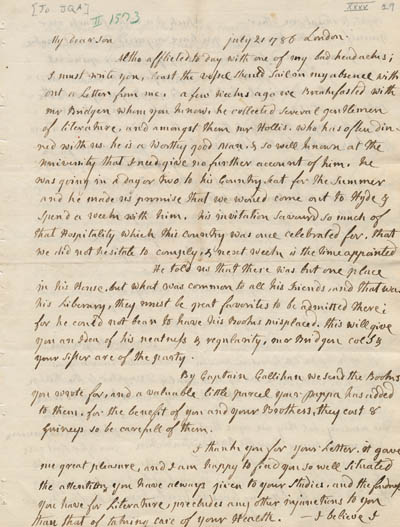 [To JQA]
II 1573
XXXX 29
My dear son july 21 1786 London.
Altho afflicted to day with one of my bad headachs;
I must write you, least the vessel should Sail in my absence with
out a Letter from me. a few weeks ago we Breakfasted with
mr Bridgen whom you know, he collected several gentlemen
of Literature, and amongst them mr Hollis. who has often din-
ned with us. he is a worthy good Man. & so well known at the
university that I need give no further account of him. he
was going in a day or two to his Country Seat for the Summer
and he made us promise that we would come out to Hyde &
spend a week with him. his invitation savourd so much of
that Hospitality which this Country was once celebrated for, that
we did not hesitate to comply, & next week is the time appointed
He told us that there was but one place
in his House, but what was common to all his Friends, and that was
his Liberary, they must be great favorites to be admitted there;
for he could not bear to have his Books misplaced. this will give
you an Idea of his neatness & regularity, mr Bridgen col S &
your sister are of the party.
By Captain Callihan we send the Books
you wrote for, and a valuable little parcel your Pappa has added
to them. for the benefit of you and your Brothers, they cost 8
Guineys so be carefull of them.
I thank you for your Letter. it gave
me great pleasure, and I am happy to find you so well situated
the attention you have always given to your Studies, and the fondness
you have for Literature, precludes any other injunctions to you
than that of taking care of your Health. — I believe I